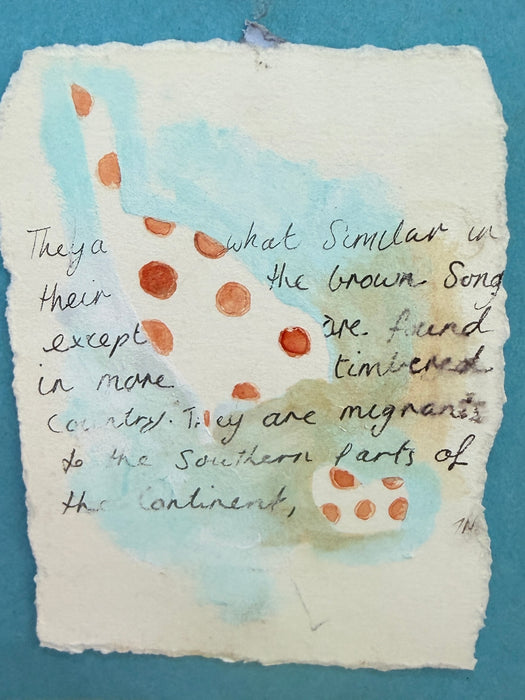 They a what Similar in
their the brown Song
except are found
in more timbered
Country. They are migrants
to the Southern Parts of
the Continent,